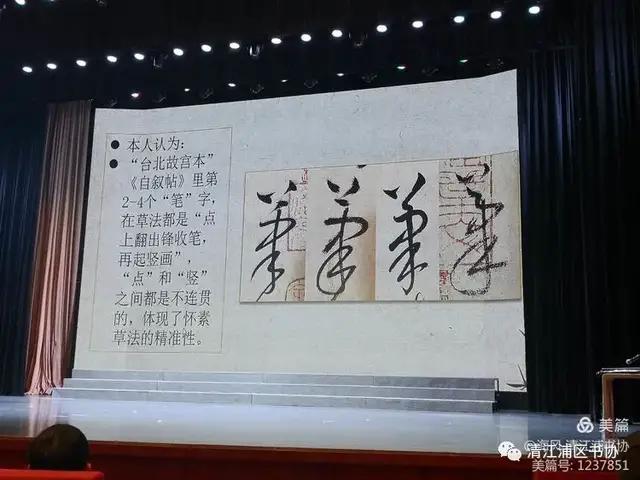 ● 本人认为:
● “台北故宫本”
《自叙帖》里第
2-4个“笔”字,
在草法都是“点
上翻出锋收笔,
再起竖画”,
“点”和“竖”
之间都是不连贯
的, 体现了怀素
草法的精准性。
美篇
清江浦区书协
美篇号: 1237851